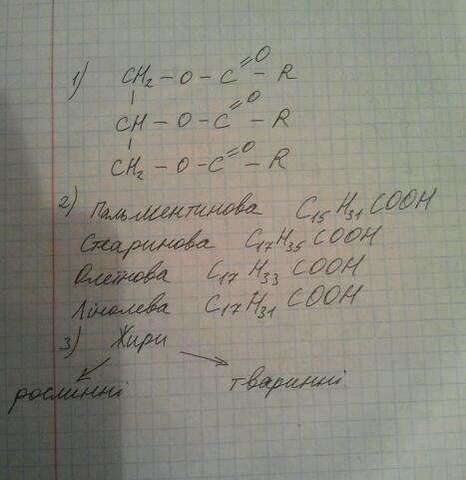 1) CH₂ – O – C =O – R
CH – O – C =O – R
CH₂ – O – C =O – R
2) Пальментинова C₁₅H₃₁COOH
Стеаринова C₁₇H₃₅COOH
Олеїнова C₁₇H₃₃COOH
Лінолева C₁₇H₃₁COOH
3) Жири
рослинні тваринні